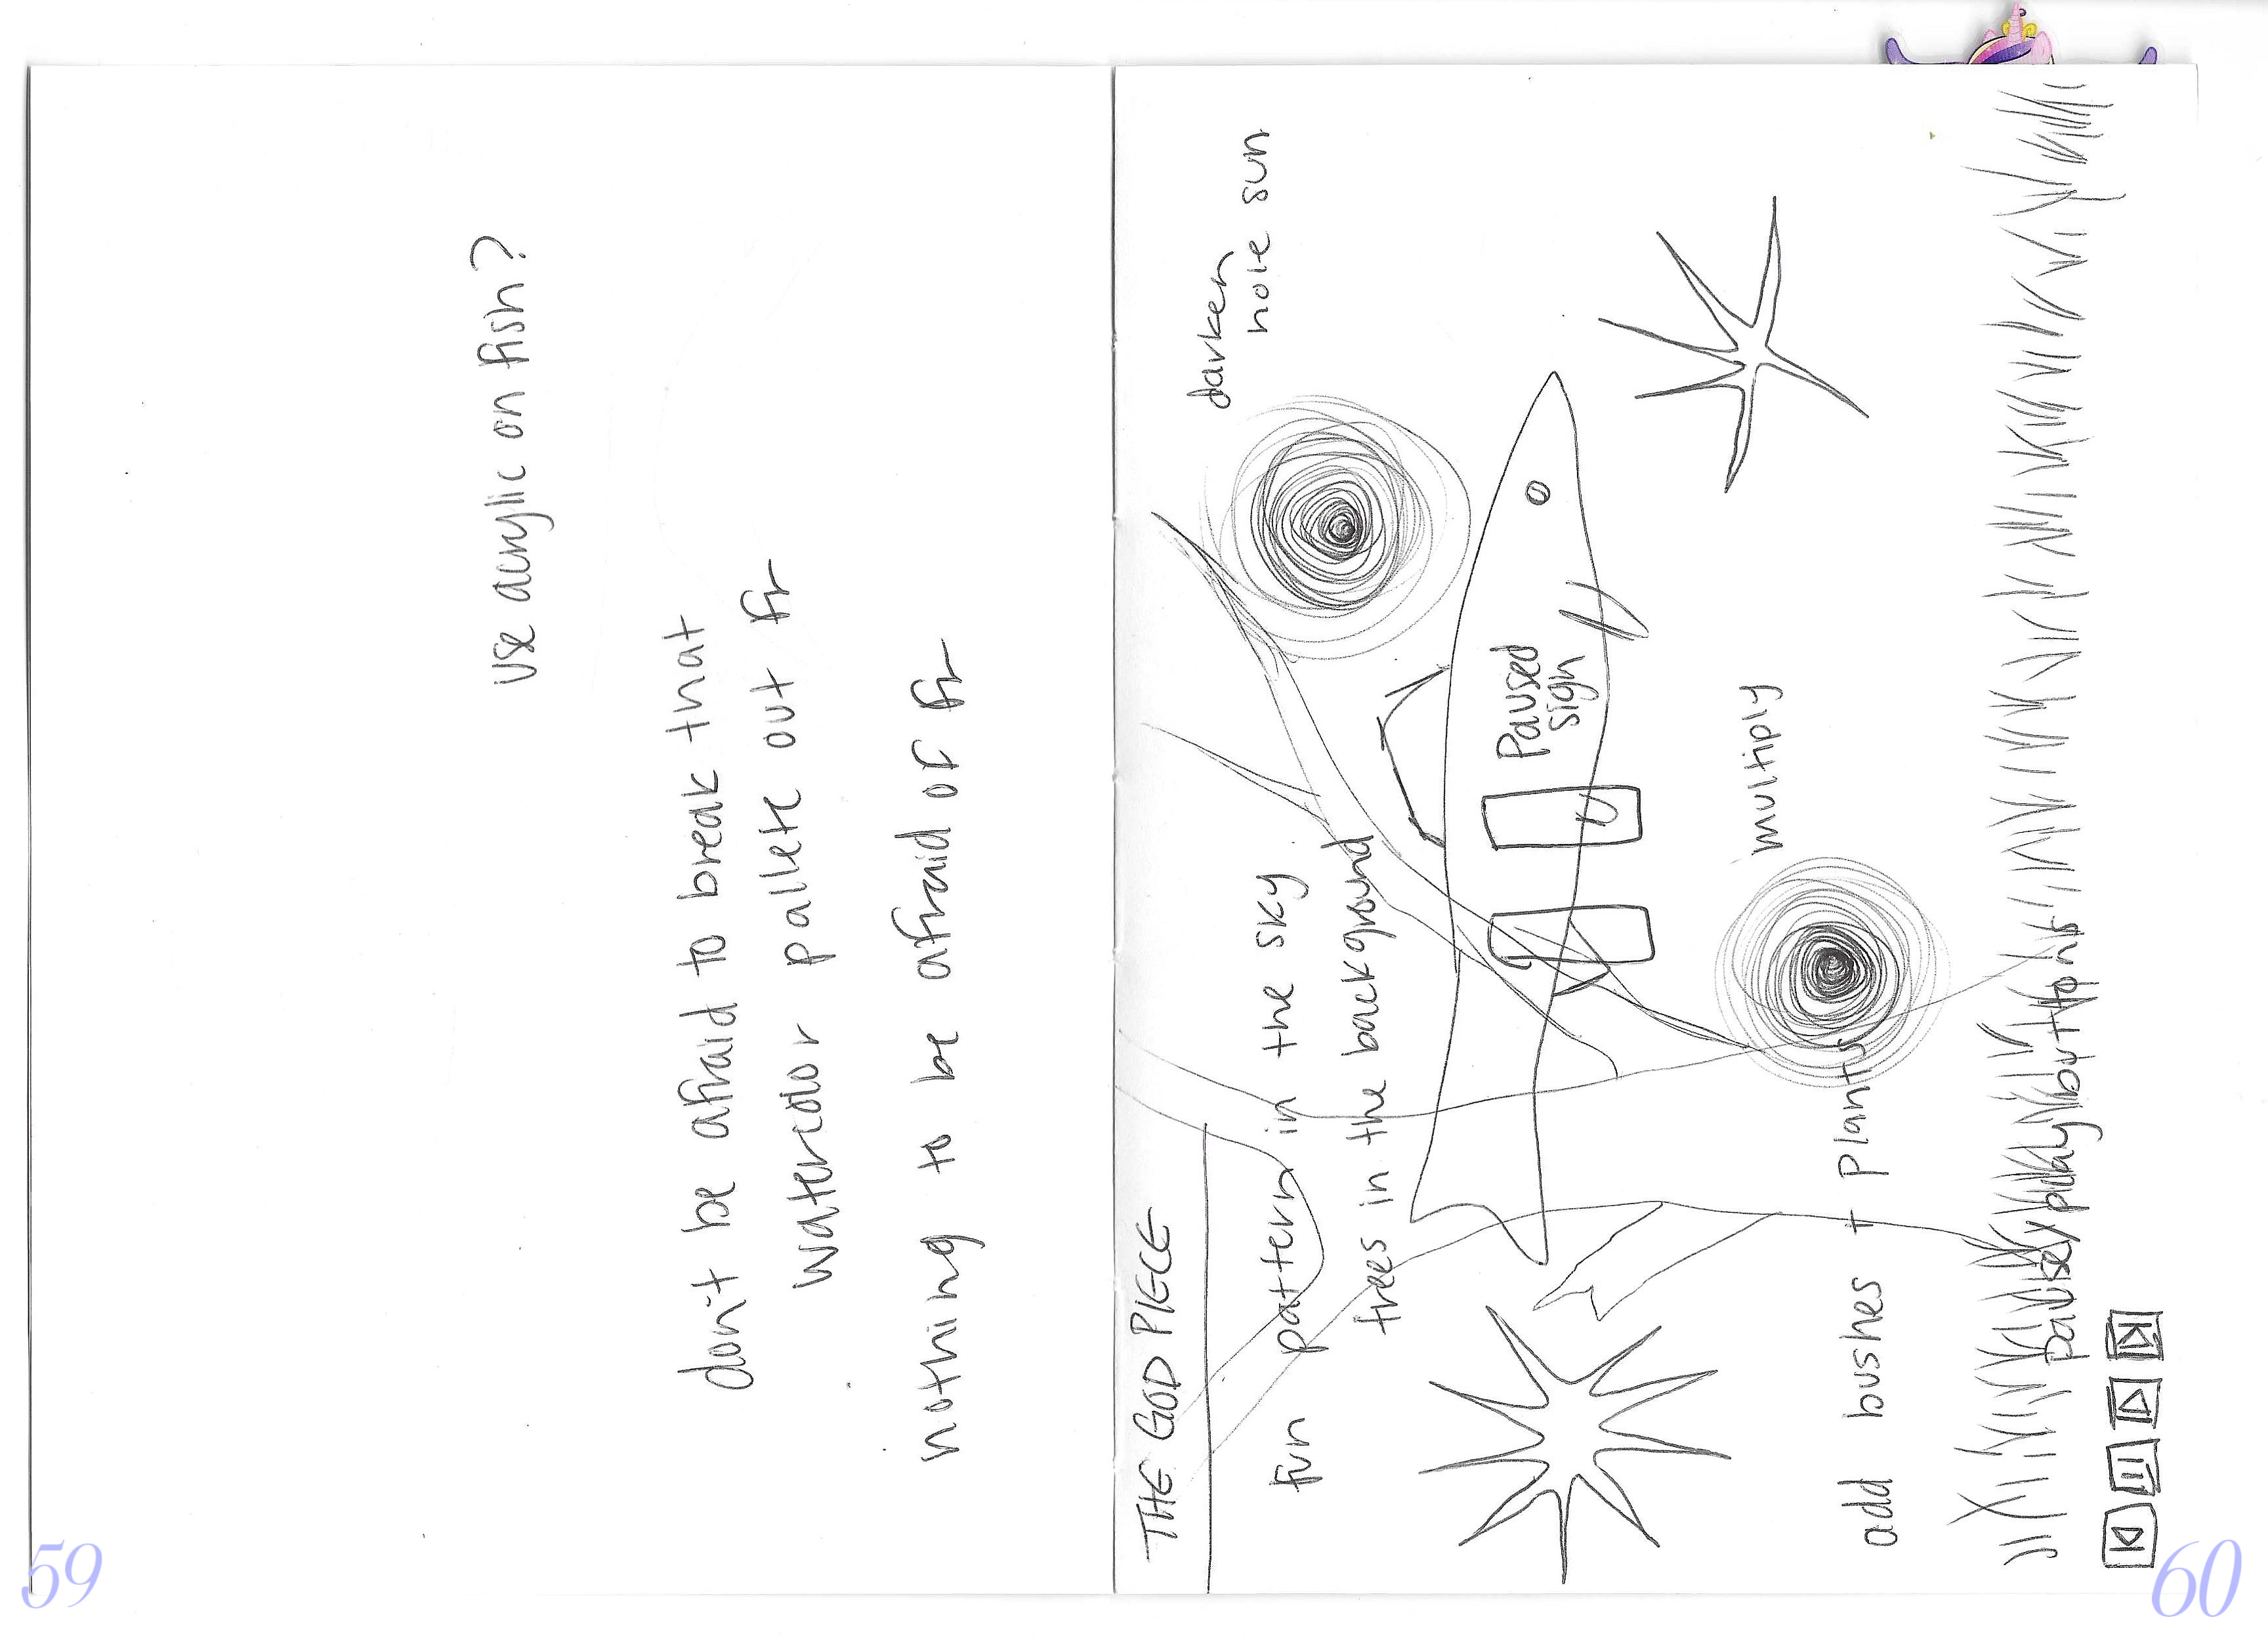 use acrylic on fish?
don't be afraid to break that
watercolor pallete out fr
nothing to be afraid of fr
59
THE GOD PIECE
darken
hole sun
fun pattern in the sky
trees in the background
Paused
sign
multiply
add bushes + plants
pause/play buttons
60